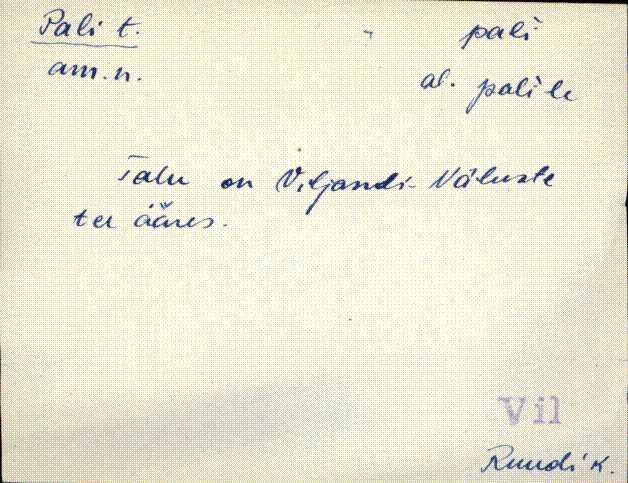 Pali t. " pali
am.n. al. palile
Talu on Viljandi-Väluste
tee ääres.
Vil
Ruudi k.